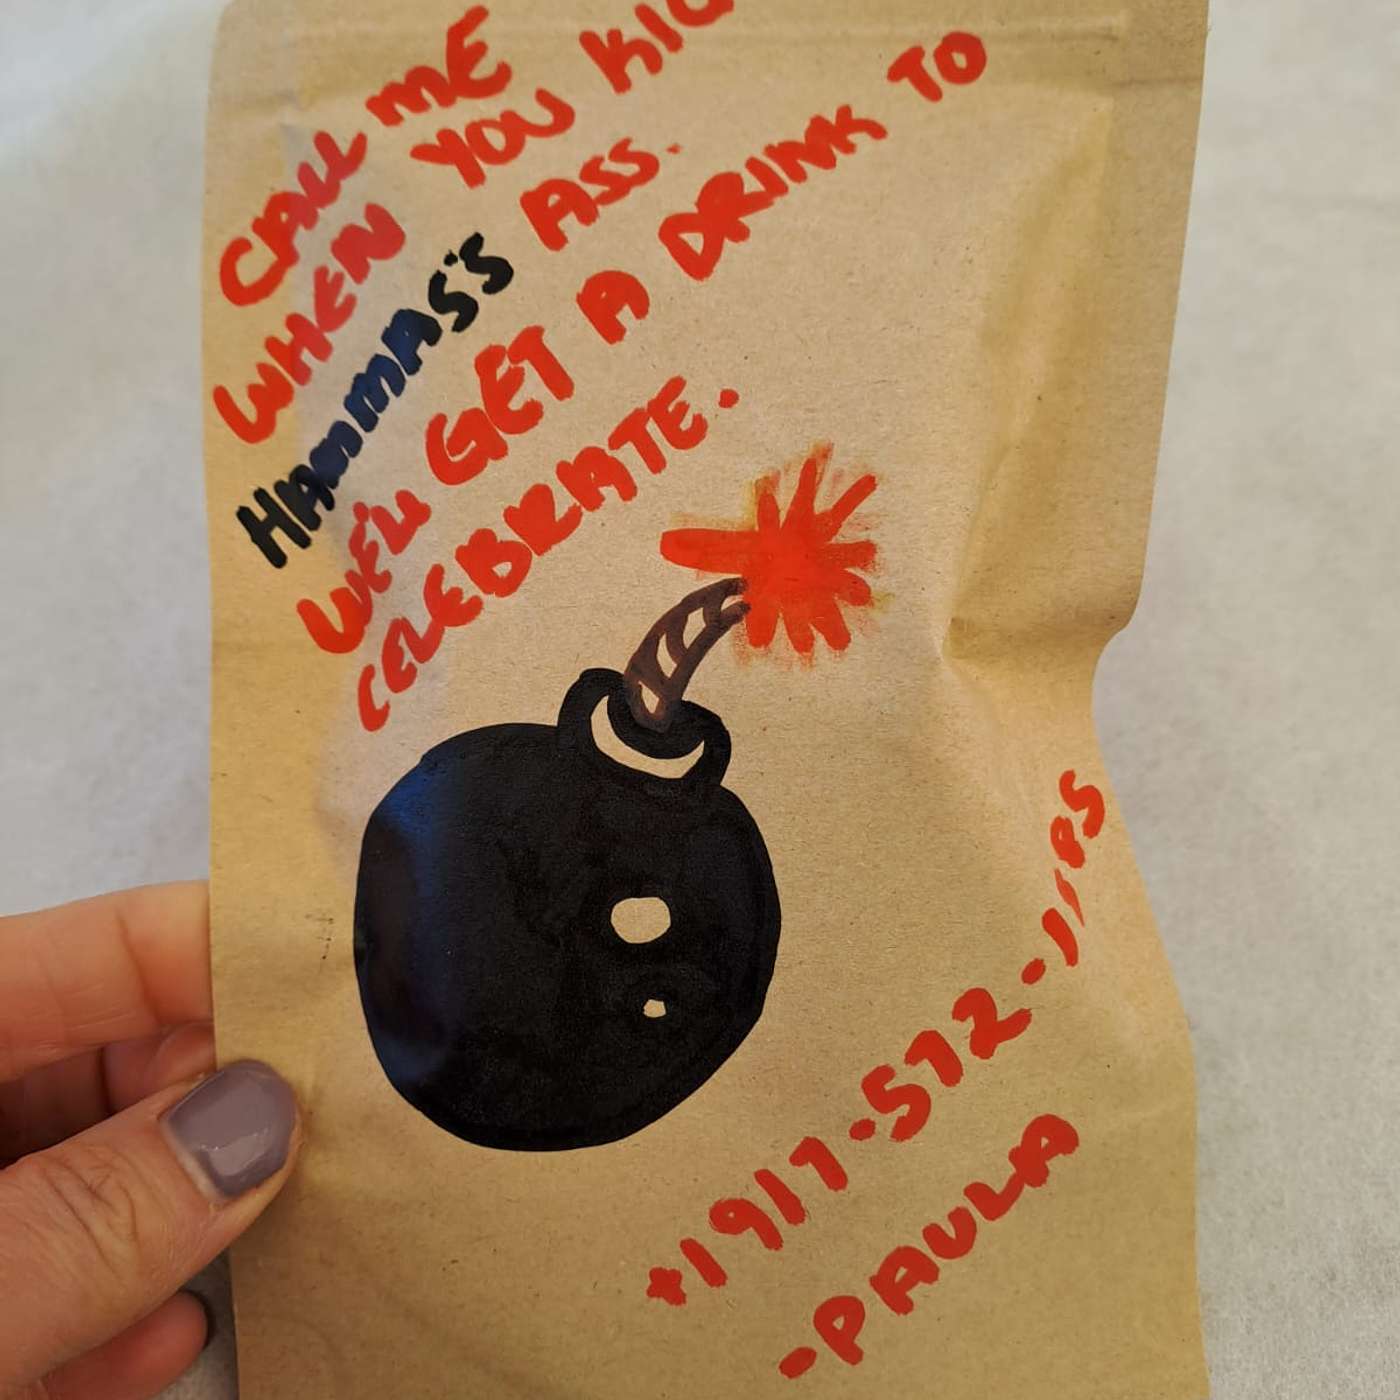 CALL ME
WHEN YOU
HAMMAS'S ASS.
WE'LL GET A DRINK TO
CELEBRATE.
+1917-572-1185
-PAULA